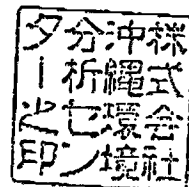 株式会社
沖縄環境
分析セン
ター之印